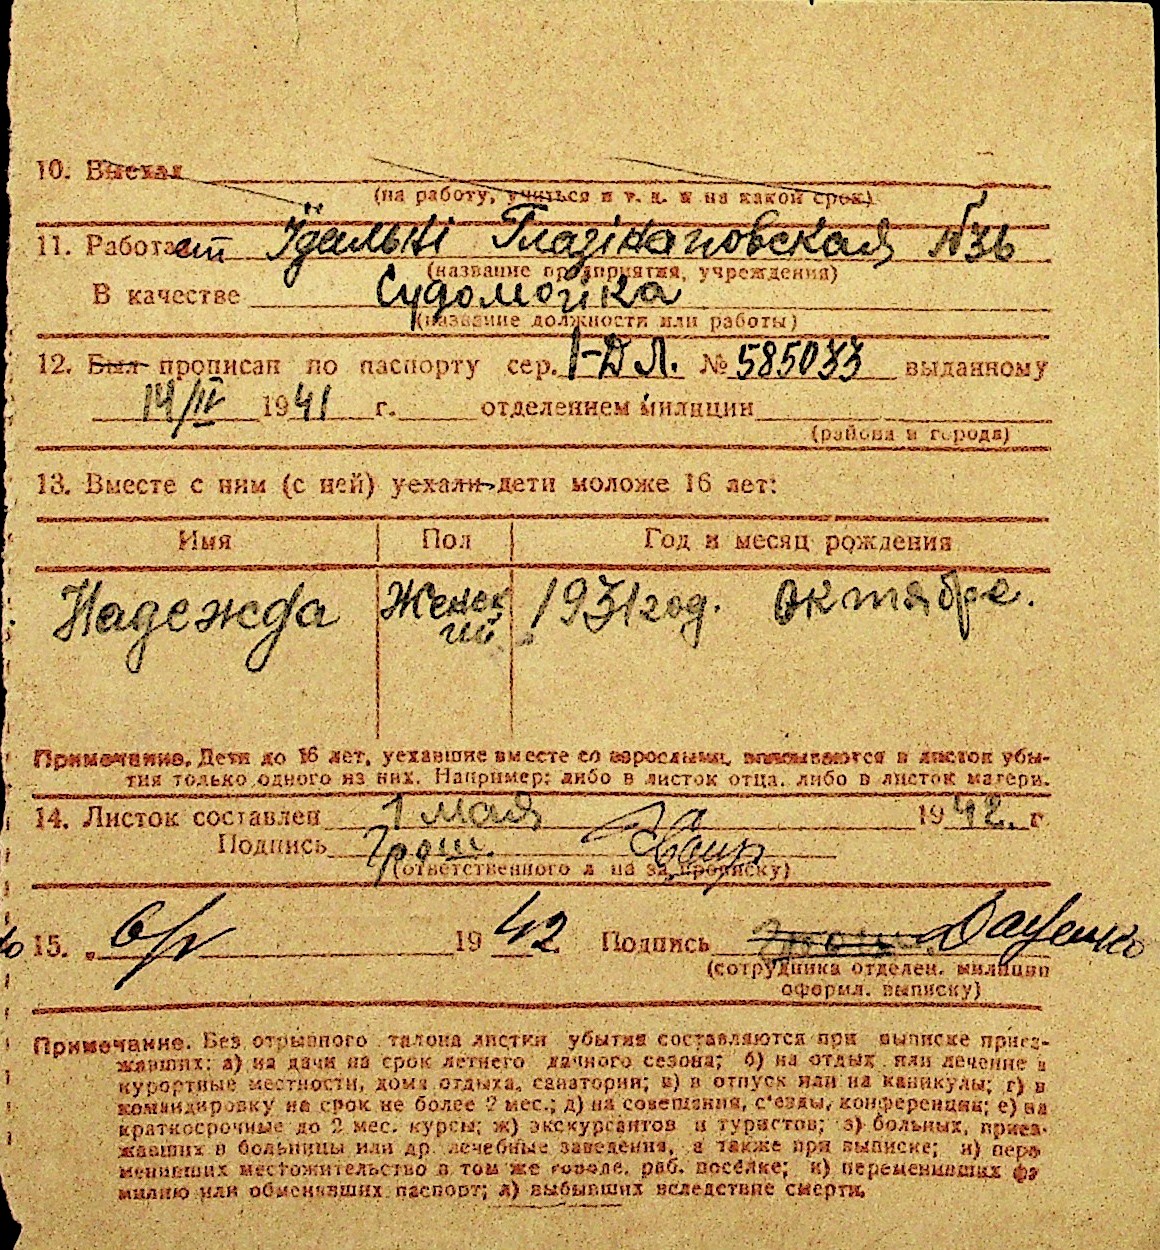 10. Выехал
(на работу, учиться и т. д. и на какой срок)
11. Работает Їдальні Глазінаповская №36
(название предприятия, учреждения)
В качестве Судомойка
(название должности или работы)
12. Был прописан по паспорту сер. I-ДЛ. № 585033 выданному
14/IV 1941 г. отделением милиции
(района и города)
13. Вместе с ним (с ней) уехали дети моложе 16 лет:
Имя Пол Год и месяц рождения
Надежда Женск 1931 год. Октября.
ий
Примечание. Дети до 16 лет, уехавшие вместе со взрослыми, вписываются в листок убы-
тия только одного из них. Например: либо в листок отца, либо в листок матери.
14. Листок составлен 1 мая 1942. г.
Подпись Грош.
(ответственного л на за прописку)
15. „ 6/V 1942 Подпись Даценко
(сотрудника отделен. милиции
оформл. выписку)
Примечание. Без отрывного талона листки убытия составляются при выписке приез-
жавших: а) на дачи на срок летнего дачного сезона; б) на отдых или лечение в
курортные местности, дома отдыха, санатории; в) в отпуск или на каникулы; г) в
командировку на срок не более 2 мес.; д) на совещания, с'езды, конференции; е) на
краткосрочные до 2 мес. курсы; ж) экскурсантов и туристов; з) больных, приез-
жавших в больницы или др. лечебные заведения, а также при выписке; и) пере
менивших местожительство в том же городе, раб. посёлке; к) переменивших фа
милию или обменявших паспорт; л) выбывших вследствие смерти.